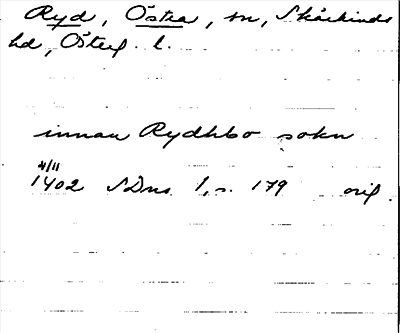 Ryd, Östra, sn, Skärkinds
hd, Österg. l.
innan Rydhbo sokn
4/11
1402 SDns 1, s. 179 orig.